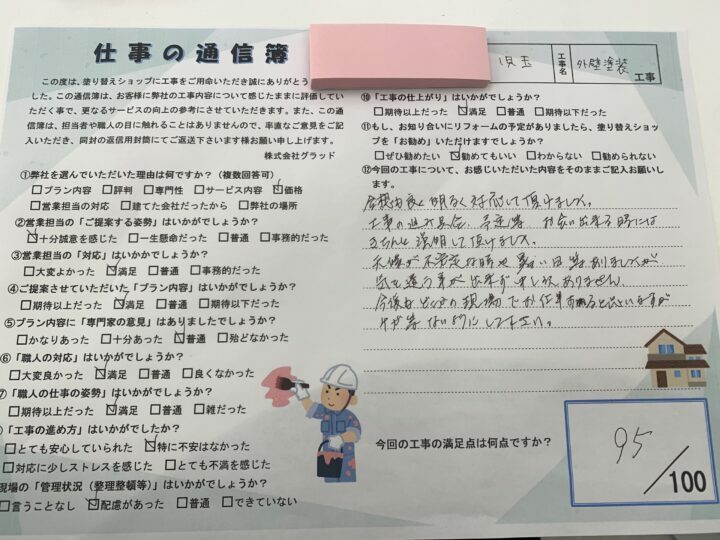 仕事の通信簿
児玉
工事名
外壁塗装
工事
この度は、塗り替えショップに工事をご用命いただき誠にありがとう
した。この通信簿は、お客様に弊社の工事内容について感じたままに評価してい
ただく事で、更なるサービスの向上の参考にさせていただきます。また、この通
信簿は、担当者や職人の目に触れることはありませんので、率直なご意見をご記
入いただき、同封の返信用封筒にてご返送下さいます様お願い申し上げます。
株式会社グラッド
①弊社を選んでいただいた理由は何ですか？（複数回答可）
□プラン内容 □評判 □専門性 □サービス内容 ☑価格
□営業担当の対応 □建てた会社だったから □弊社の場所
②営業担当の「ご提案する姿勢」はいかがでしょうか？
☑十分誠意を感じた □一生懸命だった □普通 □事務的だった
③営業担当の「対応」はいかかでしょうか？
□大変よかった ☑満足 □普通 □事務的だった
④ご提案させていただいた「プラン内容」はいかがでしょうか？
□期待以上だった ☑満足 □普通 □期待以下だった
⑤プラン内容に「専門家の意見」はありましたでしょうか？
□かなりあった □十分あった ☑普通 □殆どなかった
⑥「職人の対応」はいかがでしょうか？
□大変良かった ☑満足 □普通 □良くなかった
⑦「職人の仕事の姿勢」はいかがでしょうか？
□期待以上だった ☑満足 □普通 □雑だった
「工事の進め方」はいかがでしたか？
□とても安心していられた ☑特に不安はなかった
□対応に少しストレスを感じた □とても不満を感じた
現場の「管理状況（整理整頓等）」はいかがでしょうか？
□言うことなし ☑配慮があった □普通 □できていない
⑩「工事の仕上がり」はいかがでしょうか？
□期待以上だった ☑満足 □普通 □期待以下だった
⑪もし、お知り合いにリフォームの予定がありましたら、塗り替えショッ
プを「お勧め」いただけますでしょうか？
□ぜひ勧めたい ☑勧めてもいい □わからない □勧められない
⑫今回の工事について、お感じいただいた内容をそのままご記入お願いし
ます。
明るく対応して頂けました。
工事の進み具合、予定等 お会い出来る時には
きちんと説明して頂けました。
天候が不安定な時や暑い日等ありましたが
今後も
して下さい。
今回の工事の満足点は何点ですか？
95
/100